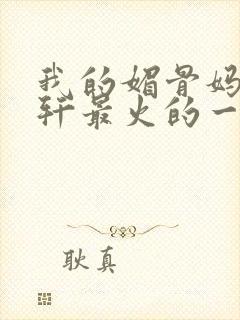 我的媚骨妈
轩最火的一
耿真